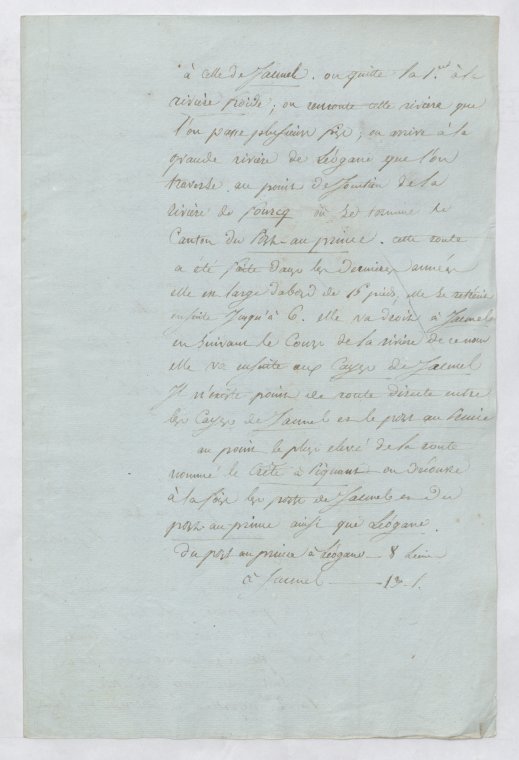 à celle de Jacmel. on quitte la 1.ere à la
rivière froide; on remonte cette rivière que
l'on passe plusieurs fois; on arrive à la
grande rivière de Léogane que l'on
traverse au point de Jonction de la
rivière de fourcq où se termine le
Canton du Port-au-prince. cette route
a été faite dans les dernieres années
elle est large d'abord de 15 pieds, elle se retrécie
ensuite Jusqu'à 6. elle va droit à Jacmel
en suivant le Cours de la rivière de ce nom
elle va ensuite aux Cayes de Jacmel
Il n'existe point de route directe entre
les Cayes de Jacmel et le port au Prince
au point le plus elevé de la route
nommé le Crête à Piquant on découvre
à la fois les ports de Jacmel et du
port au prince ainsi que Léogane.
Du port au prince à Léogane 8 Lieues
à Jacmel 13 l.